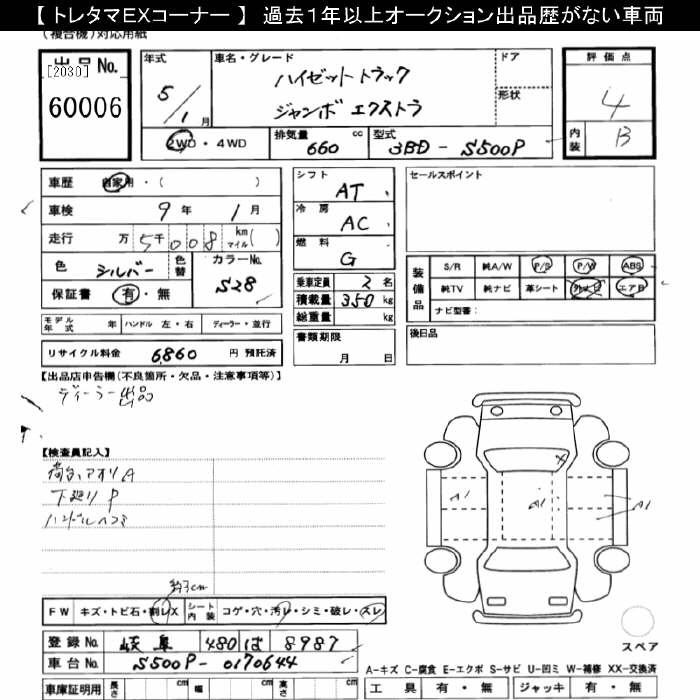 【 トレタマEXコーナー 】 過去1年以上オークション出品歴がない車両
(複合機) 対応用紙
出品No.
[2030]
60006
年式
5/1月
車名・グレード
ハイゼットトラック
ジャンボ エクストラ
ドア
形状
2WD・4WD
排気量 660 cc
型式 3BD - S500P
評価点
4
内装 B
車歴 自家用・( )
車検 9年 1月
走行 万5千008 km マイル( )
色 シルバー 色替
カラーNo. S28
保証書 有・無
シフト AT
冷房 AC
燃料 G
乗車定員 2名
積載量 350 kg
総重量 kg
セールスポイント
装備品
S/R 純A/W P/S P/W ABS
純TV 純ナビ 革シート 外ナビ エアB
ナビ型番:
モデル年式 年 ハンドル 左・右 ディーラー・並行
リサイクル料金 6,860 円 預託済
書類期限
月 日
後日品
【出品店申告欄(不良箇所・欠品・注意事項等)】
ディーラー出品
【検査員記入】
荷台、アオリA
下廻りP
ハンドルヘコミ
約3cm
A1 A1 A1
X
FW キズ・トビ石・割レX シート内装 コゲ・穴・汚レ・シミ・破レ・スレ
登録No. 岐阜 480 は 8987
車台No. S500P-0170644
車庫証明用 長さ cm 幅 cm 高さ cm
スペア
A-キズ C-腐食 E-エクボ S-サビ U-凹ミ W-補修 XX-交換済
工具 有・無 ジャッキ 有・無